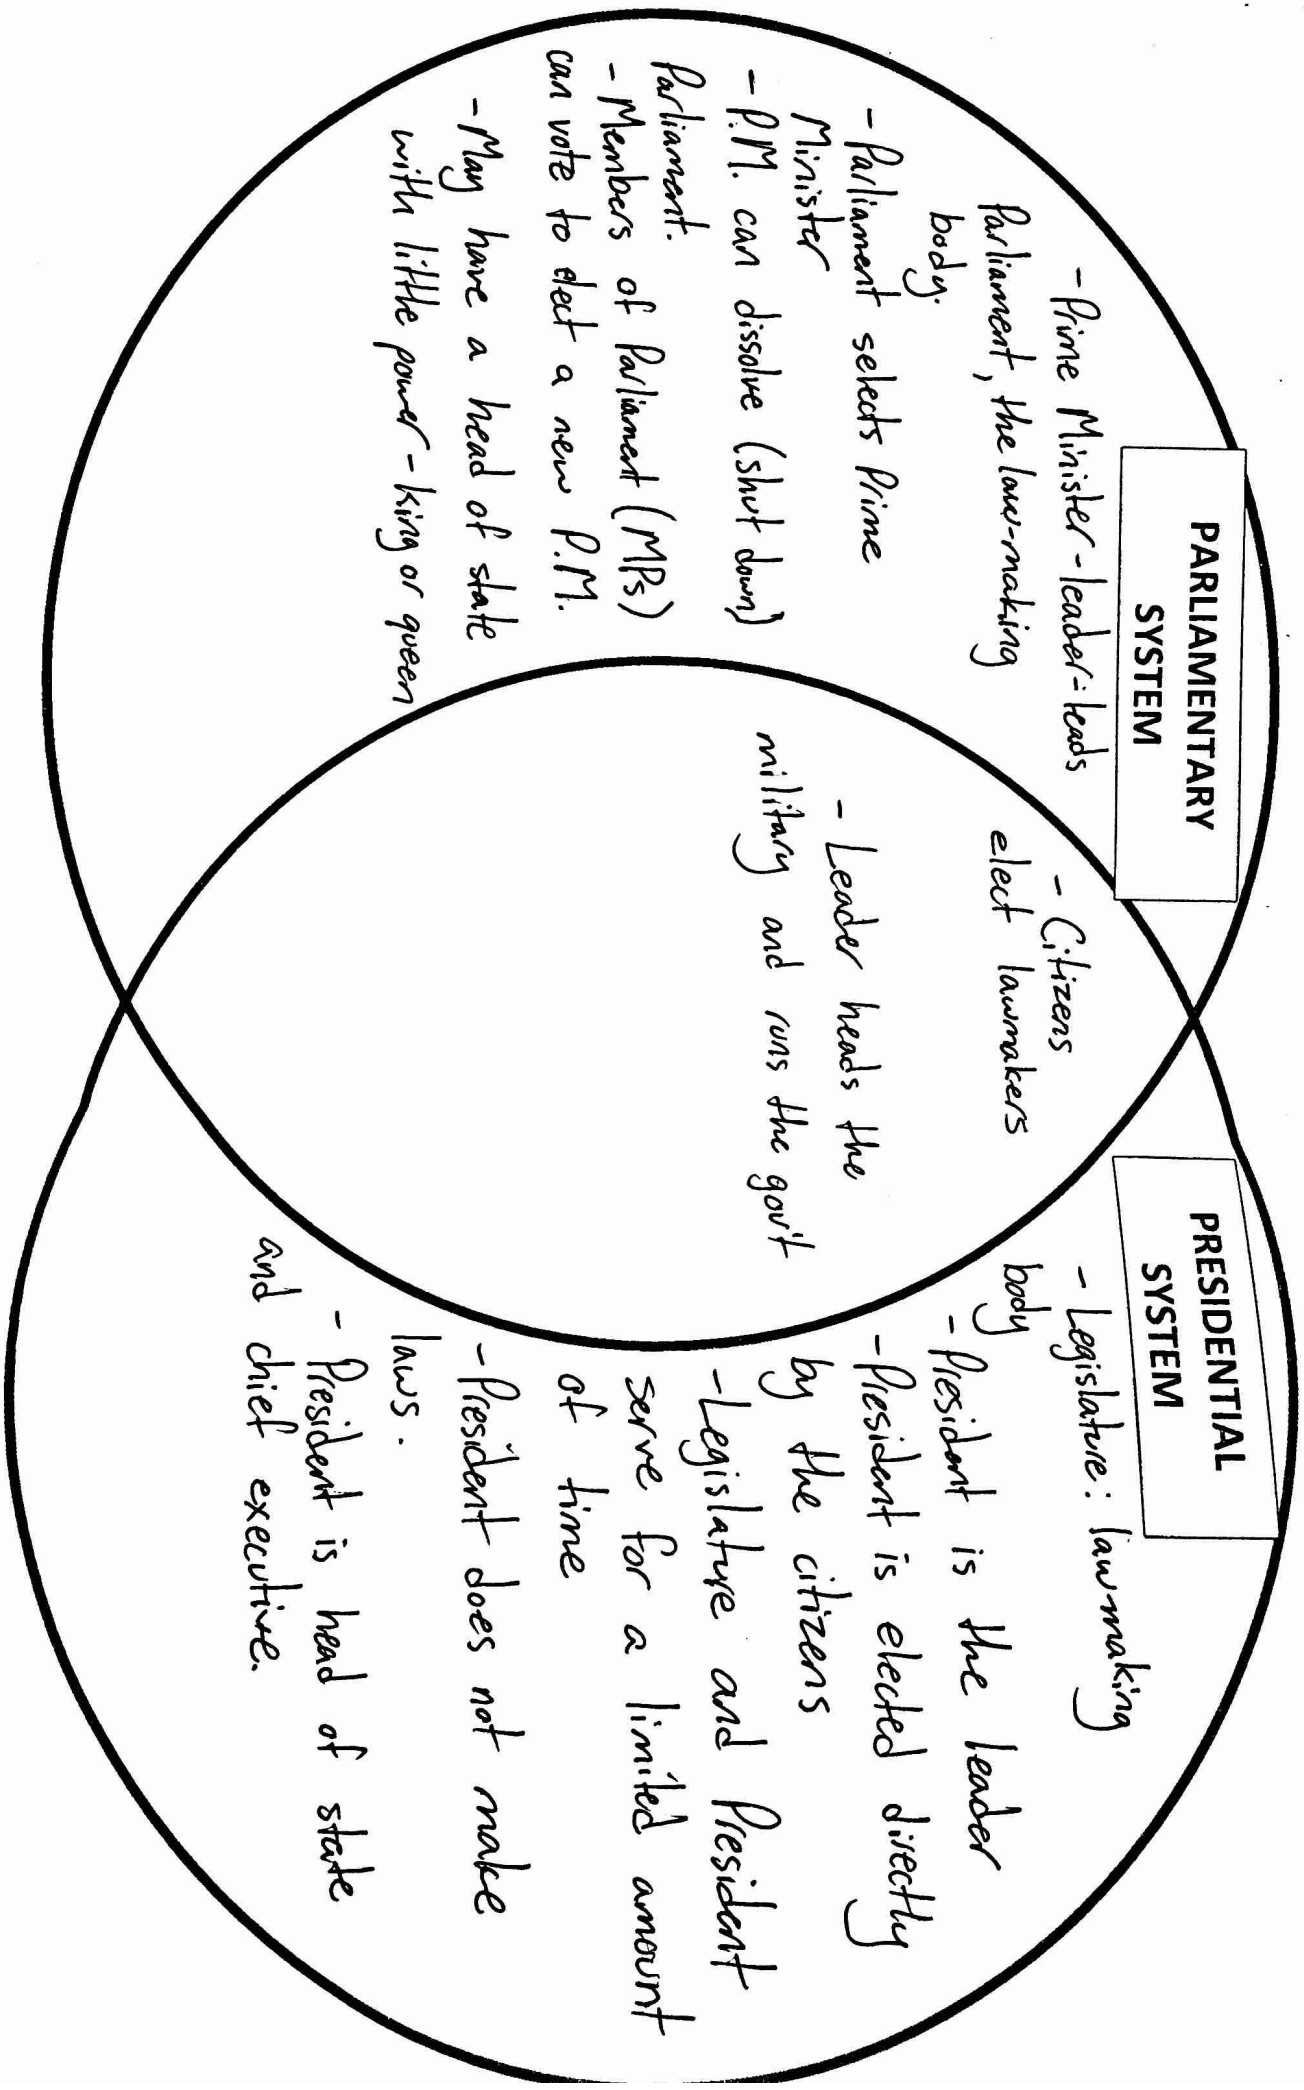 PARLIAMENTARY
SYSTEM
- Prime Minister - leader - leads
Parliament, the law-making
body.
- Parliament selects Prime
Minister
- P.M. can dissolve (shut down)
Parliament.
- Members of Parliament (MPs)
can vote to elect a new P.M.
- May have a head of state
with little power - king or queen
- Citizens
elect lawmakers
- Leader heads the
military and runs the gov't
PRESIDENTIAL
SYSTEM
- Legislature: lawmaking
body
- President is the leader
- President is elected directly
by the citizens
- Legislature and President
serve for a limited amount
of time
- President does not make
laws.
- President is head of state
and chief executive.